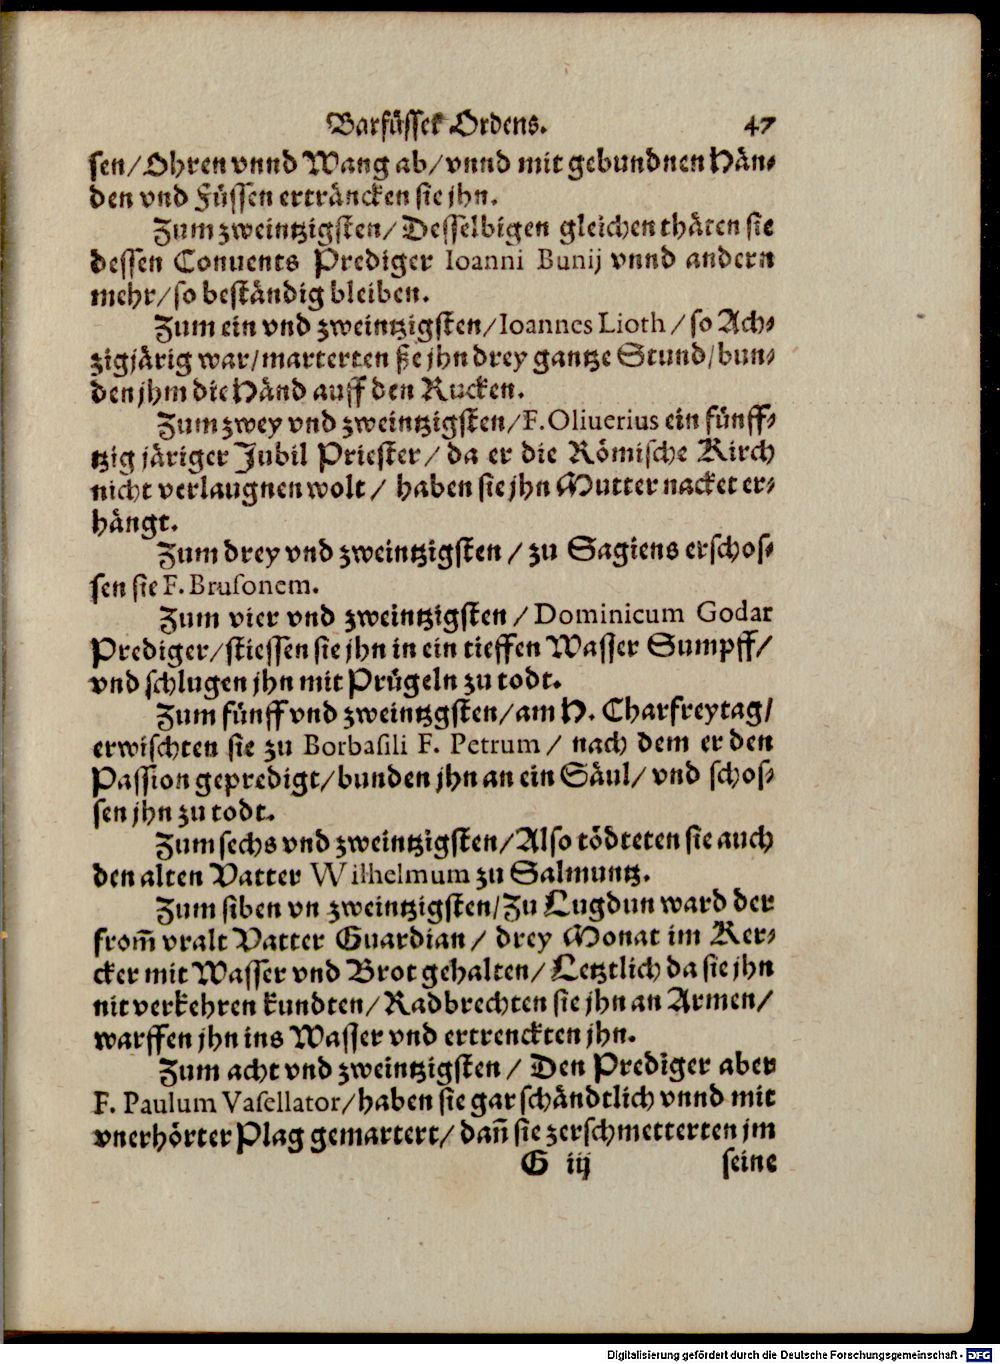 Barfüsser Ordens. 47
sen/Ohren vnnd Wang ab/vnnd mit gebundnen Hän-
den vnd Füssen ertråncken sie jhn.
Zum zweintzigsten/Desselbigen gleichen thåten sie
dessen Conuents Prediger Ioanni Bunij vnnd andern
mehr/so beståndig bleiben.
Zum ein vnd zweintzigsten/Ioannes Lioth/so Ach-
zigjårig war/marterten sie jhn drey gantze Stund/bun-
den jhm die Hånd auff den Rucken.
Zum zwey vnd zweintzigsten/F. Oliuerius ein fünff-
tzig jåriger Jubil Priester/da er die Römische Kirch
nicht verlaugnen wolt/ haben sie jhn Mutter nacket er-
hångt.
Zum drey vnd zweintzigsten/zu Sagiens erschos-
sen sie F. Brusonem.
Zum vier vnd zweintzigsten/Dominicum Godar
Prediger/stiessen sie jhn in ein tieffen Wasser Sumpff/
vnd schlugen jhn mit Prügeln zu todt.
Zum fünff vnd zweintzgsten/am H. Charfreytag/
erwischten sie zu Borbasili F. Petrum/ nach dem er den
Passion gepredigt/bunden jhn an ein Säul/vnd schos-
sen jhn zu todt.
Zum sechs vnd zweintzigsten/Also tödteten sie auch
den alten Vatter Wilhelmum zu Salmuntz.
Zum siben vn zweintzigsten/Zu Lugdun ward der
from̃ vralt Vatter Guardian/ drey Monat im Ker-
cker mit Wasser vnd Brot gehalten/Letztlich da sie jhn
nit verkehren kundten/Radbrechten sie jhn an Armen/
warffen jhn ins Wasser vnd ertrenckten jhn.
Zum acht vnd zweintzigsten/ Den Prediger aber
F. Paulum Vasellator/haben sie gar schändtlich vnnd mit
vnerhörter Plag gemartert/dañ sie zerschmetterten jm
G iij seine
Digitalisierung gefördert durch die Deutsche Forschungsgemeinschaft - DFG